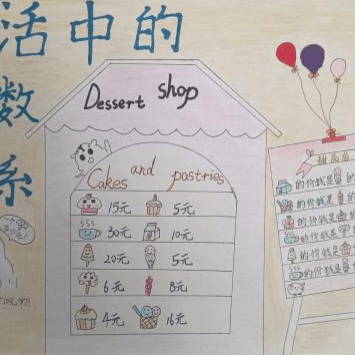 活中的
数
系
Dessert shop
Cakes and pastries
15元 5元
30元 10元
20元 5元
6元 8元
4元 16元
甜品店
的价钱是 的
的价钱是 的
的价钱是
的价钱是
的价钱是
的价钱是